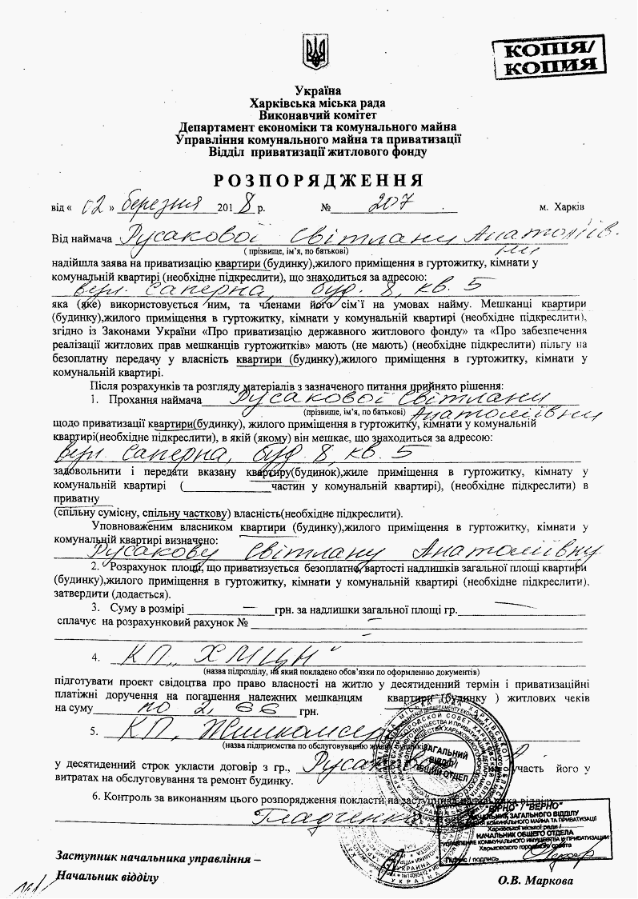 КОПІЯ/
КОПИЯ
Україна
Харківська міська рада
Виконавчий комітет
Департамент економіки та комунального майна
Управління комунального майна та приватизації
Відділ приватизації житлового фонду
РОЗПОРЯДЖЕННЯ
від « 02 » березня 2018 р. № 207 м. Харків
Від наймача Русакової Світлани Анатоліїв.
ни
( прізвище, ім'я, по батькові)
надійшла заява на приватизацію квартири (будинку),жилого приміщення в гуртожитку, кімнати у
комунальній квартирі (необхідне підкреслити), що знаходиться за адресою:
вул. Саперна, буд. 8, кв. 5
яка (яке) використовується ним, та членами його сім'ї на умовах найму. Мешканці квартири
(будинку),жилого приміщення в гуртожитку, кімнати у комунальній квартирі (необхідне підкреслити),
згідно із Законами України «Про приватизацію державного житлового фонду» та «Про забезпечення
реалізації житлових прав мешканців гуртожитків» мають (не мають) (необхідне підкреслити) пільгу на
безоплатну передачу у власність квартири (будинку),жилого приміщення в гуртожитку, кімнати у
комунальній квартирі.
Після розрахунків та розгляду матеріалів з зазначеного питання прийнято рішення:
1. Прохання наймача Русакової Світлани
(прізвище, ім'я, по батькові) Анатоліївни
щодо приватизації квартири(будинку), жилого приміщення в гуртожитку, кімнати у комунальній
квартирі(необхідне підкреслити), в якій (якому) він мешкає, що знаходиться за адресою:
вул. Саперна, буд 8, кв. 5
задовольнити і передати вказану квартиру(будинок),жиле приміщення в гуртожитку, кімнату у
комунальній квартирі (____________частин у комунальній квартирі), (необхідне підкреслити) в
приватну
(спільну сумісну, спільну часткову) власність(необхідне підкреслити).
Уповноваженим власником квартири (будинку),жилого приміщення в гуртожитку, кімнати у
комунальній квартирі визначено:
Русакову Світлану Анатоліївну
2. Розрахунок площі, що приватизується безоплатно,вартості надлишків загальної площі квартири
(будинку),жилого приміщення в гуртожитку, кімнати у комунальній квартирі (необхідне підкреслити).
затвердити (додається).
3. Суму в розмірі — грн. за надлишки загальної площі гр. —
сплачує на розрахунковий рахунок № —
4. КП „ХМЦН"
(назва підрозділу, на який покладено обов'язки по оформленню документів)
підготувати проект свідоцтва про право власності на житло у десятиденний термін і приватизаційні
платіжні доручення на погашення належних мешканцям квартири (будинку ) житлових чеків
на суму по 2,66 грн.
5. КП „Жилкомсервіс"
(назва підприємства по обслуговуванню
у десятиденний строк укласти договір з гр., участь його у
витратах на обслуговування та ремонт будинку.
6. Контроль за виконанням цього розпорядження покласти на заступника начальника відділу
Гладченко
ЗАГАЛЬНИЙ
ВІДДІЛ
ОБЩИЙ ОТДЕЛ
"ВІРНО" / "ВЕРНО"
НАЧАЛЬНИК ЗАГАЛЬНОГО ВІДДІЛУ
УПРАВЛІННЯ КОМУНАЛЬНОГО МАЙНА ТА ПРИВАТИЗАЦІЇ
Харківської міської ради /
НАЧАЛЬНИК ОБЩЕГО ОТДЕЛА
УПРАВЛЕНИЕ КОММУНАЛЬНОГО ИМУЩЕСТВА И ПРИВАТИЗАЦИИ
Харьковского городского совета
Підпис / подпись
Заступник начальника управління –
Начальник відділу О.В. Маркова